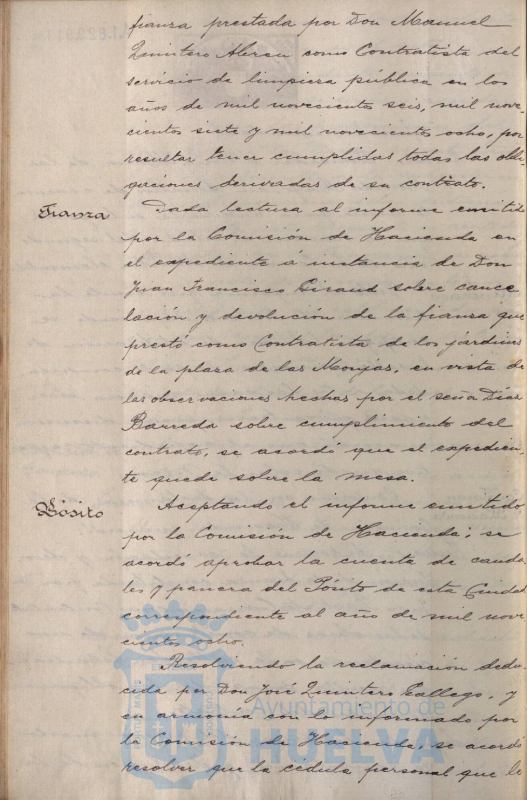 fianza prestada por Don Manuel
Quintero Abreu como Contratista del
servicio de limpieza pública en los
años de mil novecientos seis, mil nove-
cientos siete y mil novecientos ocho, por
resultar tener cumplidas todas las obli-
gaciones derivadas de su contrato.
Fianza
Dada lectura al informe emitido
por la Comisión de Hacienda en
el expediente á instancia de Don
Juan Francisco Giraud sobre cance-
lación y devolución de la fianza que
prestó como Contratista de los jardines
de la plaza de las Monjas, en vista de
las observaciones hechas por el señor Díaz
Barreda sobre cumplimiento del
contrato, se acordó que el expedien-
te quede sobre la mesa.
Pósito
Aceptando el informe emitido
por la Comisión de Hacienda; se
acordó aprobar la cuenta de cauda-
les y panera del Pósito de esta Ciudad
correspondiente al año de mil nove-
cientos ocho.
Resolviendo la reclamacion dedu-
cida por Don José Quintero Gallego, y
en armonía con lo informado por
la Comisión de Hacienda, se acordó
resolver que la cédula personal que le
Ayuntamiento de
HUELVA